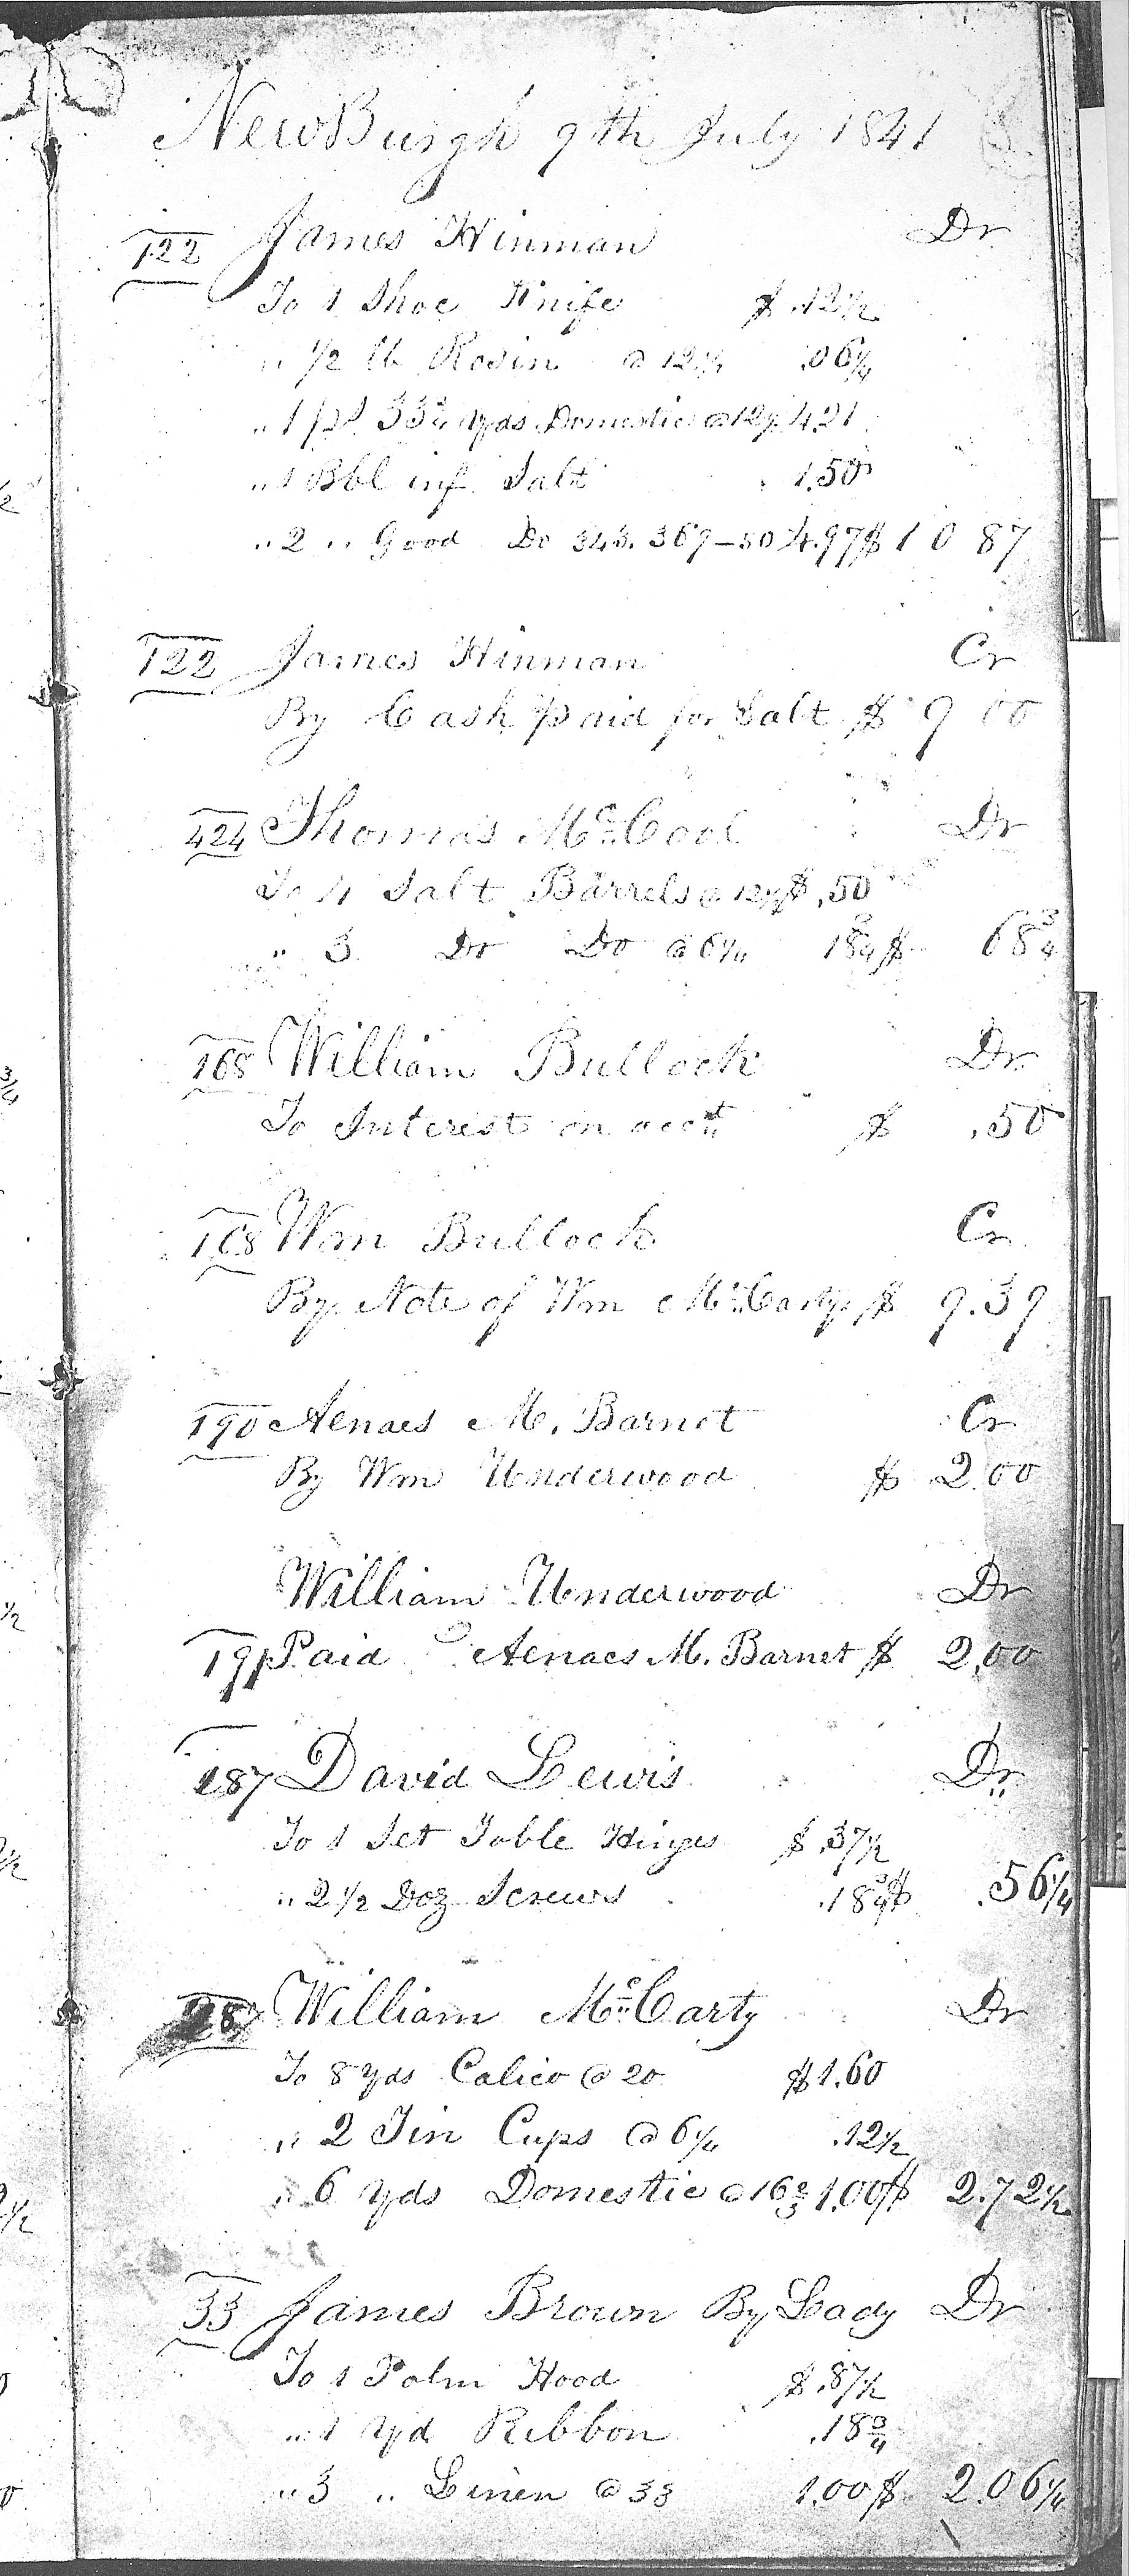 NewBurgh 9th July 1841
122 James Hinman Dr
To 1 Shoe Knife $ .12½
" ½ lb Rosin @ 12½ .06¼
" 1 ps 33¾ yds Domestic @ 12½ 4.21
" 1 Bbl inf. Salt 1.50
" 2 " Good Do 343. 369–50 4.97 $ 10 87
122 James Hinman Cr
By Cash paid for Salt $ 9 00
424 Thomas McCool Dr
To 4 Salt Barrels @ 12½ $ .50
" 3 Do Do @ 6¼ 18¾ $ 68¾
168 William Bullock Dr
To Interest on acct $ .50
168 Wm Bullock Cr
By Note of Wm McCarty $ 9.39
190 Aenaes M. Barnet Cr
By Wm Underwood $ 2.00
William Underwood Dr
191 Paid Aenaes M. Barnet $ 2.00
187 David Lewis Dr
To 1 Set Table Hinges $ .37½
" 2½ Doz Screws .18¾ $ .56¼
28 William McCarty Dr
To 8 yds Calico @ 20 $1.60
" 2 Tin Cups @ 6¼ .12½
" 6 Yds Domestic @ 16⅔ 1.00 $ 2.72½
33 James Brown By Lady Dr
To 1 Palm Hood $ .87½
" 1 Yd Ribbon .18¾
" 3 " Linen @ 33 1.00 $ 2.06¼